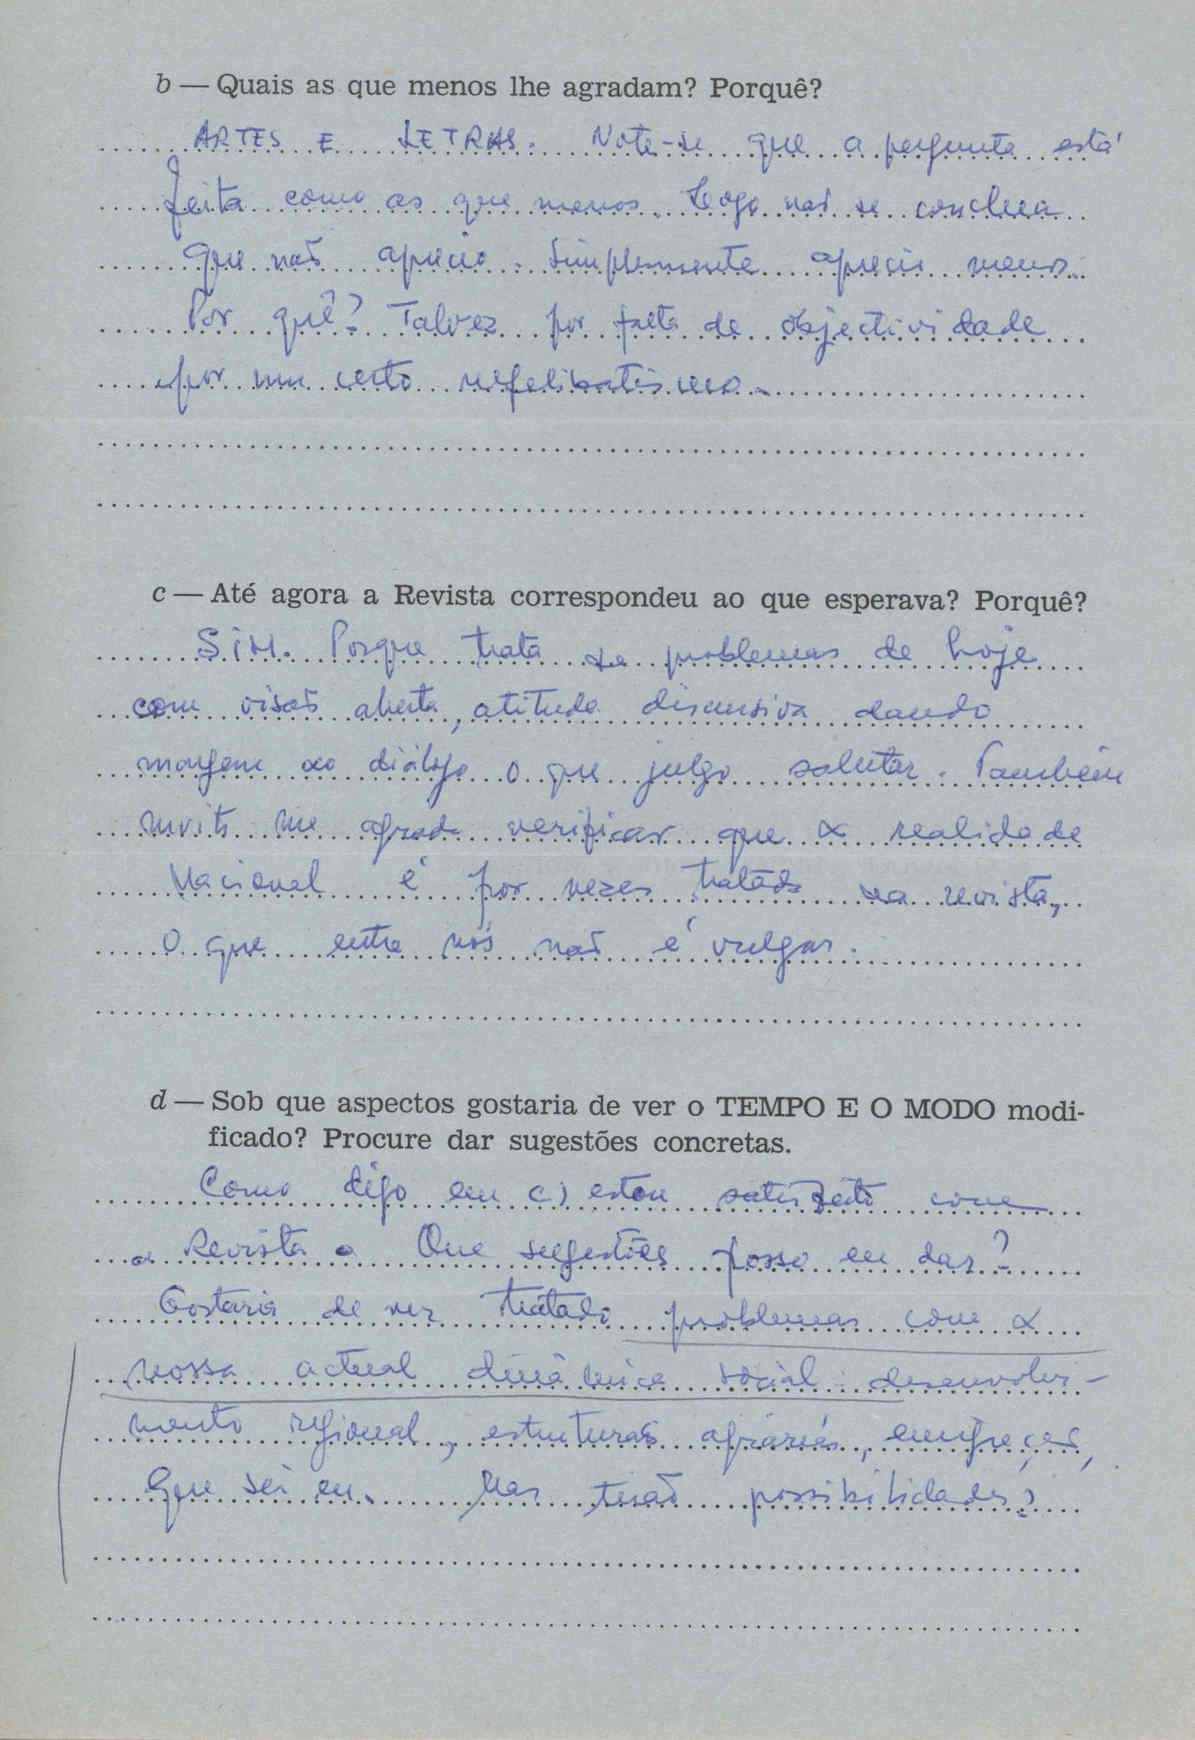 b — Quais as que menos lhe agradam? Porquê?
ARTES E LETRAS. Note-se que a pergunta está
feita como as que menos. Logo não se conclua
que não aprecio. Simplesmente aprecio menos.
Por quê? Talvez por falta de objectividade
por um certo nefelibatismo.
c — Até agora a Revista correspondeu ao que esperava? Porquê?
SIM. Porque trata de problemas de hoje
com visão aberta, atitude discursiva dando
margem ao diálogo o que julgo salutar. Também
muito me agrada verificar que a realidade
Nacional é por vezes tratada na revista,
o que entre nós não é vulgar.
d — Sob que aspectos gostaria de ver o TEMPO E O MODO modi-
ficado? Procure dar sugestões concretas.
Como digo em c) estou satisfeito com
a Revista. Que sugestões posso eu dar?
Gostaria de ver tratado problemas com a
nossa actual dinâmica social: desenvolvi-
mento regional, estruturas agrárias,
que sei eu. Mas terão possibilidades?